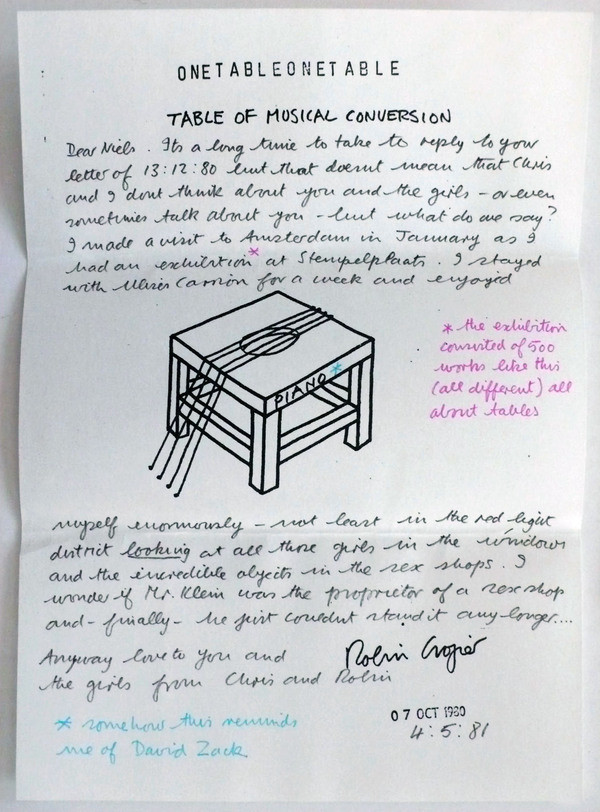 ONETABLEONETABLE
TABLE OF MUSICAL CONVERSION
Dear Niels. Its a long time to take to reply to your
letter of 13:12:80 but that doesnt mean that Chris
and I dont think about you and the girls - or even
sometimes talk about you - but what do we say?
I made a visit to Amsterdam in January as I
had an exhibition* at Stempelplaats. I stayed
with Ulises Carrion for a week and enjoyed
PIANO*
* the exhibition
consisted of 500
works like this
(all different) all
about tables
myself enormously - not least in the red light
district looking at all those girls in the windows
and the incredible objects in the sex shops. I
wonder if Mr. Klein was the proprietor of a sex shop
and - finally - he just couldnt stand it any longer....
Anyway love to you and
the girls from Chris and Robin
Robin Crozier
* somehow this reminds
me of David Zack
07 OCT 1980
4:5:81